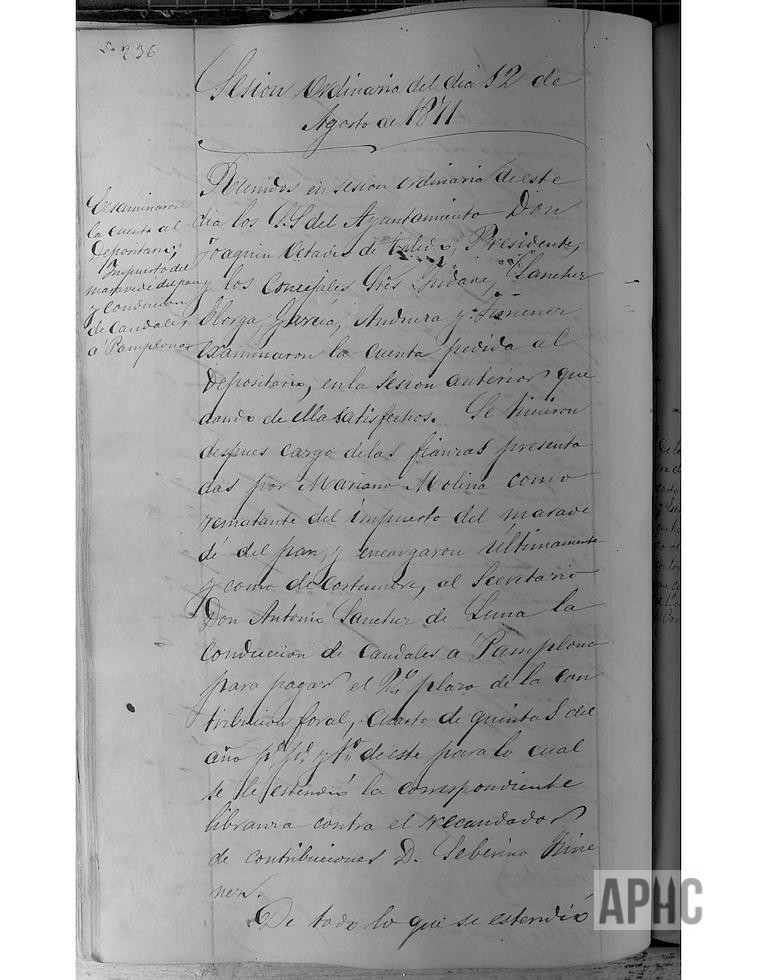 236
Sesion Ordinaria del dia 12 de
Agosto de 1871
Ecsaminaron
la cuenta al
Depositario;
Impuesto del
maravedi del pan,
y conduccion
de caudales
a Pamplona
Reunidos en sesion ordinaria de este
dia los S.S del Ayuntamiento Don
Joaquin Octavio de Toledo, Presidente,
y los Concejales Sres Sanchez
Garcia, y Jimenez
examinaron la cuenta pedida al
Depositario, en la sesion anterior que
dando de ella satisfechos. Se hicieron
despues cargo de las fianzas presenta
das por Mariano Molina como
rematante del impuesto del marave
di del pan, y encargaron ultimamente
y como de costumbre, al Secretario
Don Antonio Sanchez de Luna la
conduccion de caudales a Pamplona
para pagar el plazo de la con
tribucion foral, cuarto de quintas del
año pº pº y 1º de este para lo cual
se le estendió la correspondiente
libranza contra el recaudador
de contribuciones D. Seberino Jime
nez.
De todo lo que se estendió
APHC